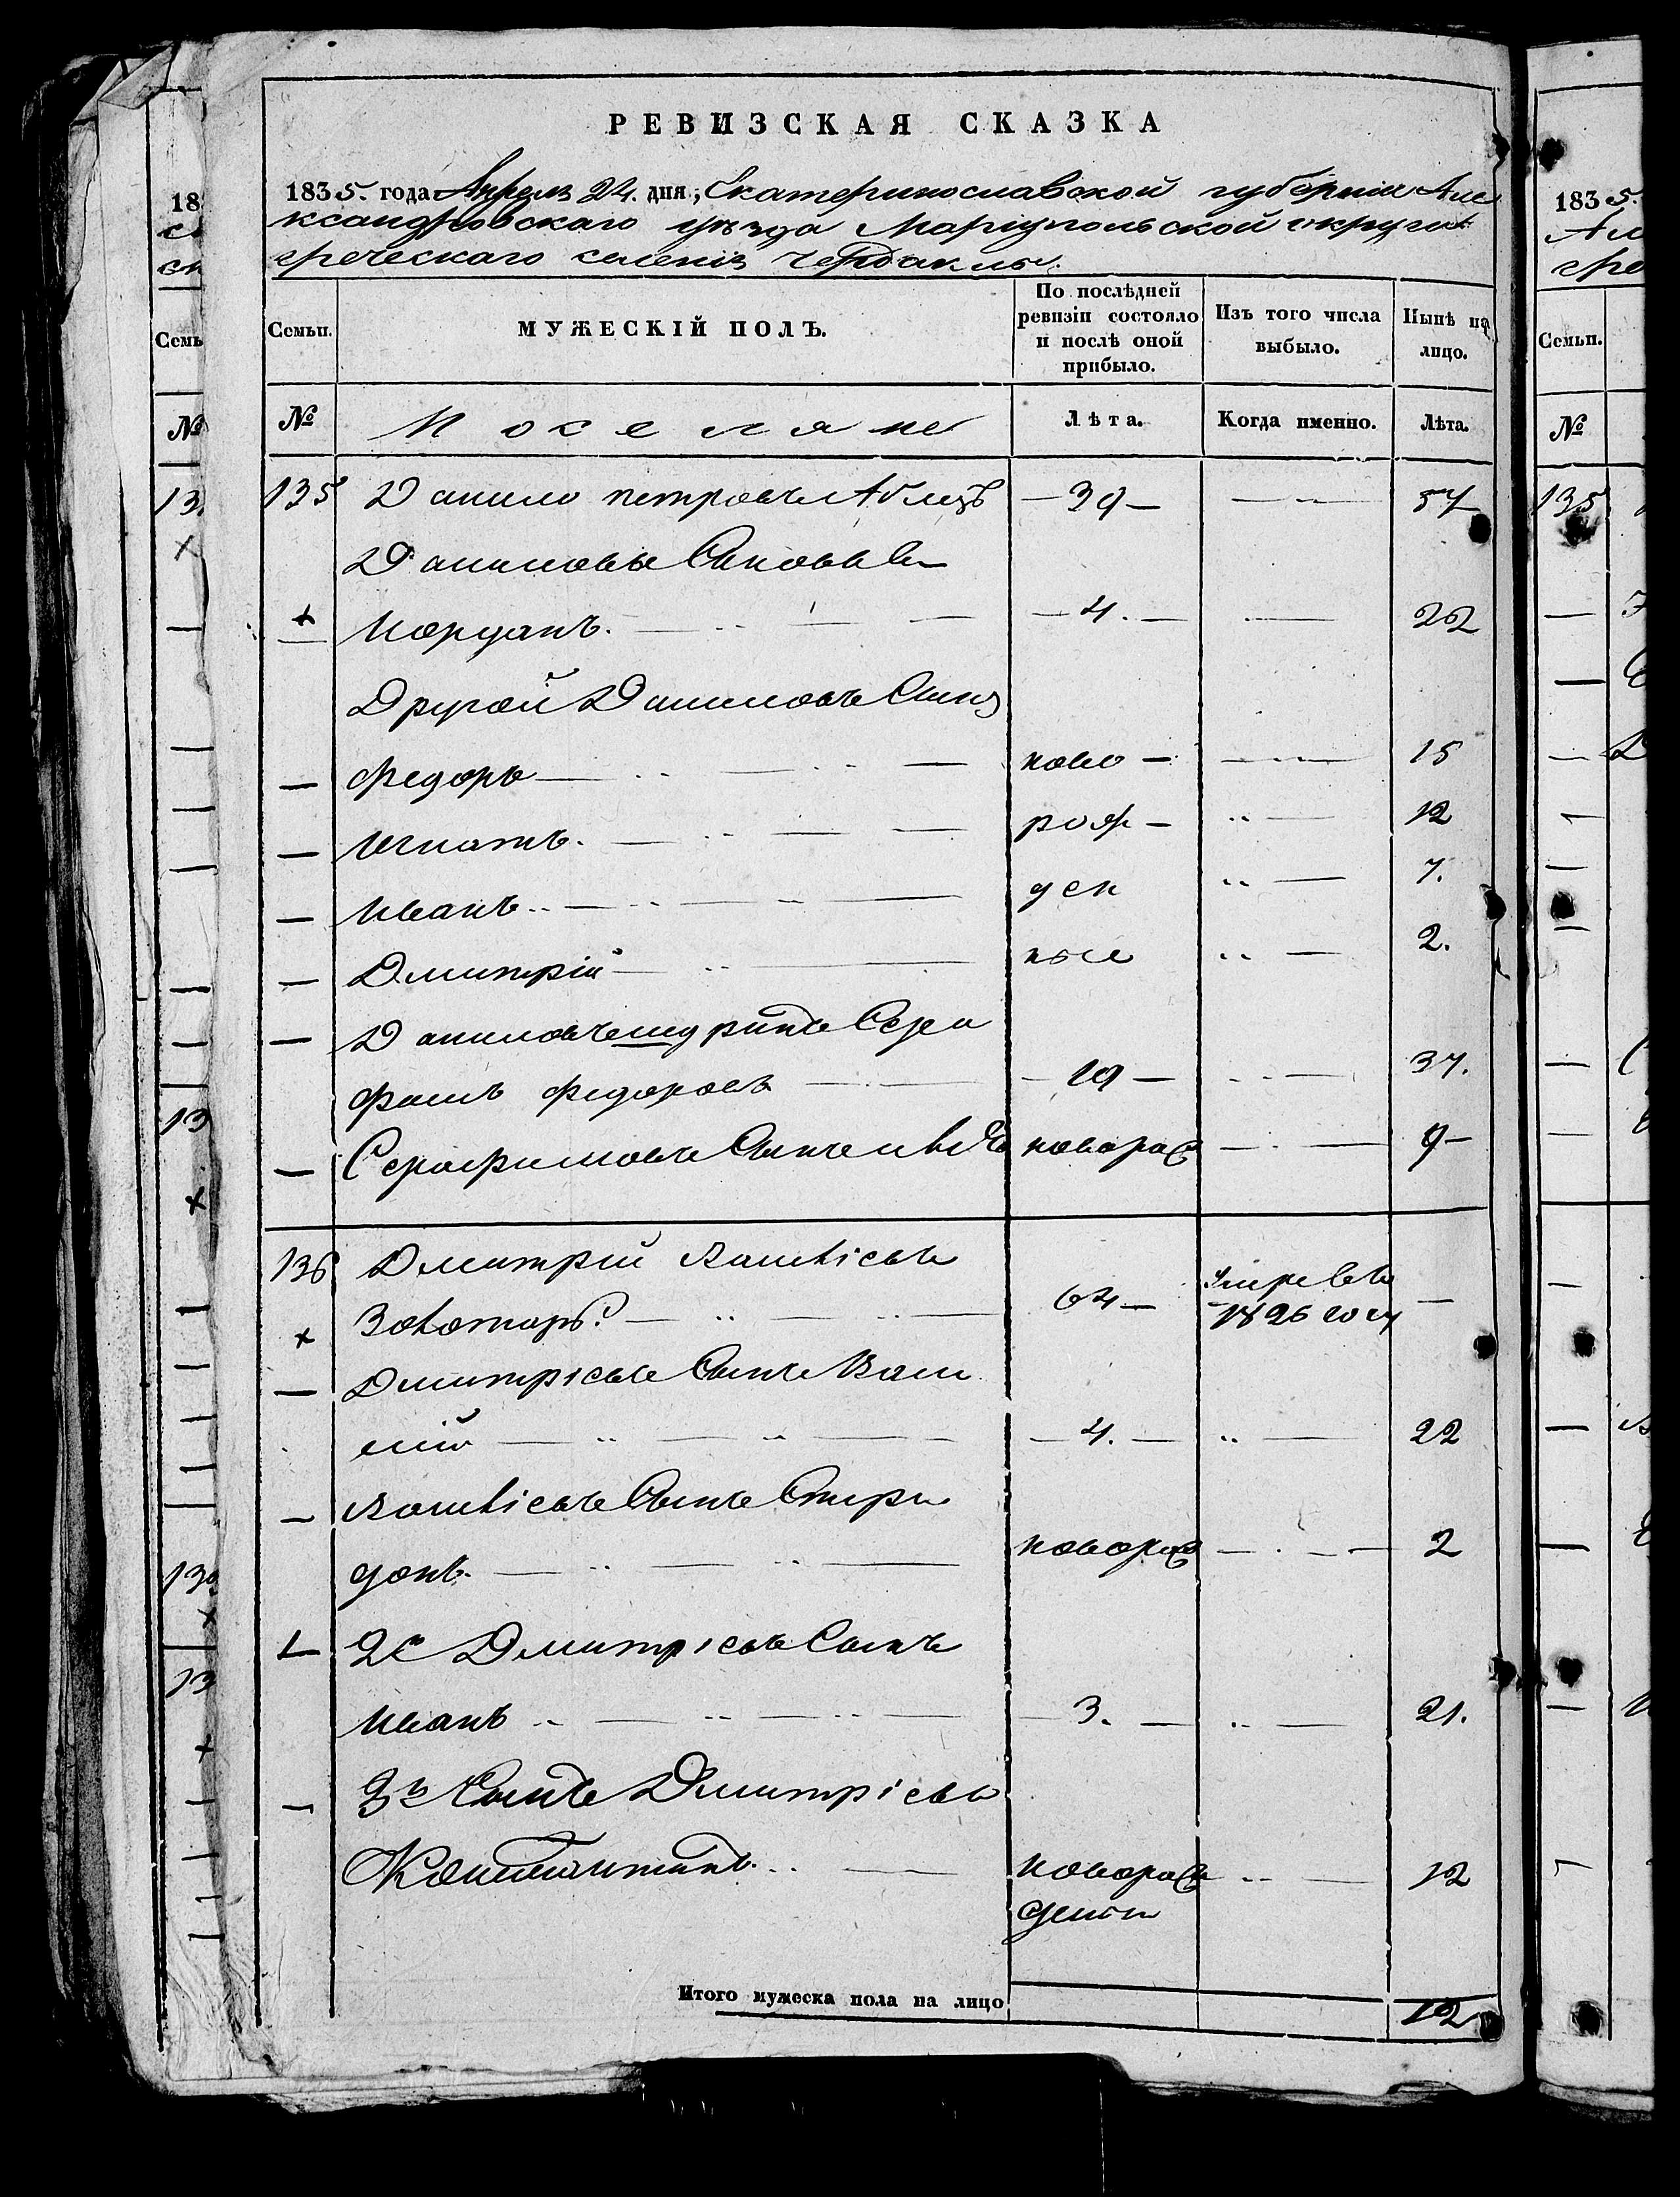 РЕВИЗСКАЯ СКАЗКА
1835. года Апреля 24. дня, Екатеринославской губернии Але
ксандровскаго уѣзда Мариупольской округи
греческаго селенія Чердаклы.
Семьи. МУЖЕСКІЙ ПОЛЪ. По послѣдней ревизіи состояло и послѣ оной прибыло. Изъ того числа выбыло. Нынѣ на лицо.
№ Поселяне Лѣта. Когда именно. Лѣта.
135 Данило петровъ —39— 57
Даниловы Сыновья
Иорданъ. —4.— 22
Другой Даниловъ Сынъ
Федоръ ново— 15
Игнатъ. рож— 12
Иванъ ден 7.
Дмитрій ные 2.
Даниловъ шуринъ Сера
фимъ Федоровъ —19— 37.
Серафимовъ Сынъ новорож 9—
136 Дмитрій Василіевъ
Золотарь 64— Умре въ 1826 году —
Дмитріевъ Сынъ Васи
лій —4.— 22
Василіевъ Сынъ Спири
донъ. новорож 2
2й Дмитріевъ Сынъ
Иванъ 3. 21.
3й Сынъ Дмитріевъ
Константинъ. новорож
денъ 12
Итого мужеска пола на лицо 12